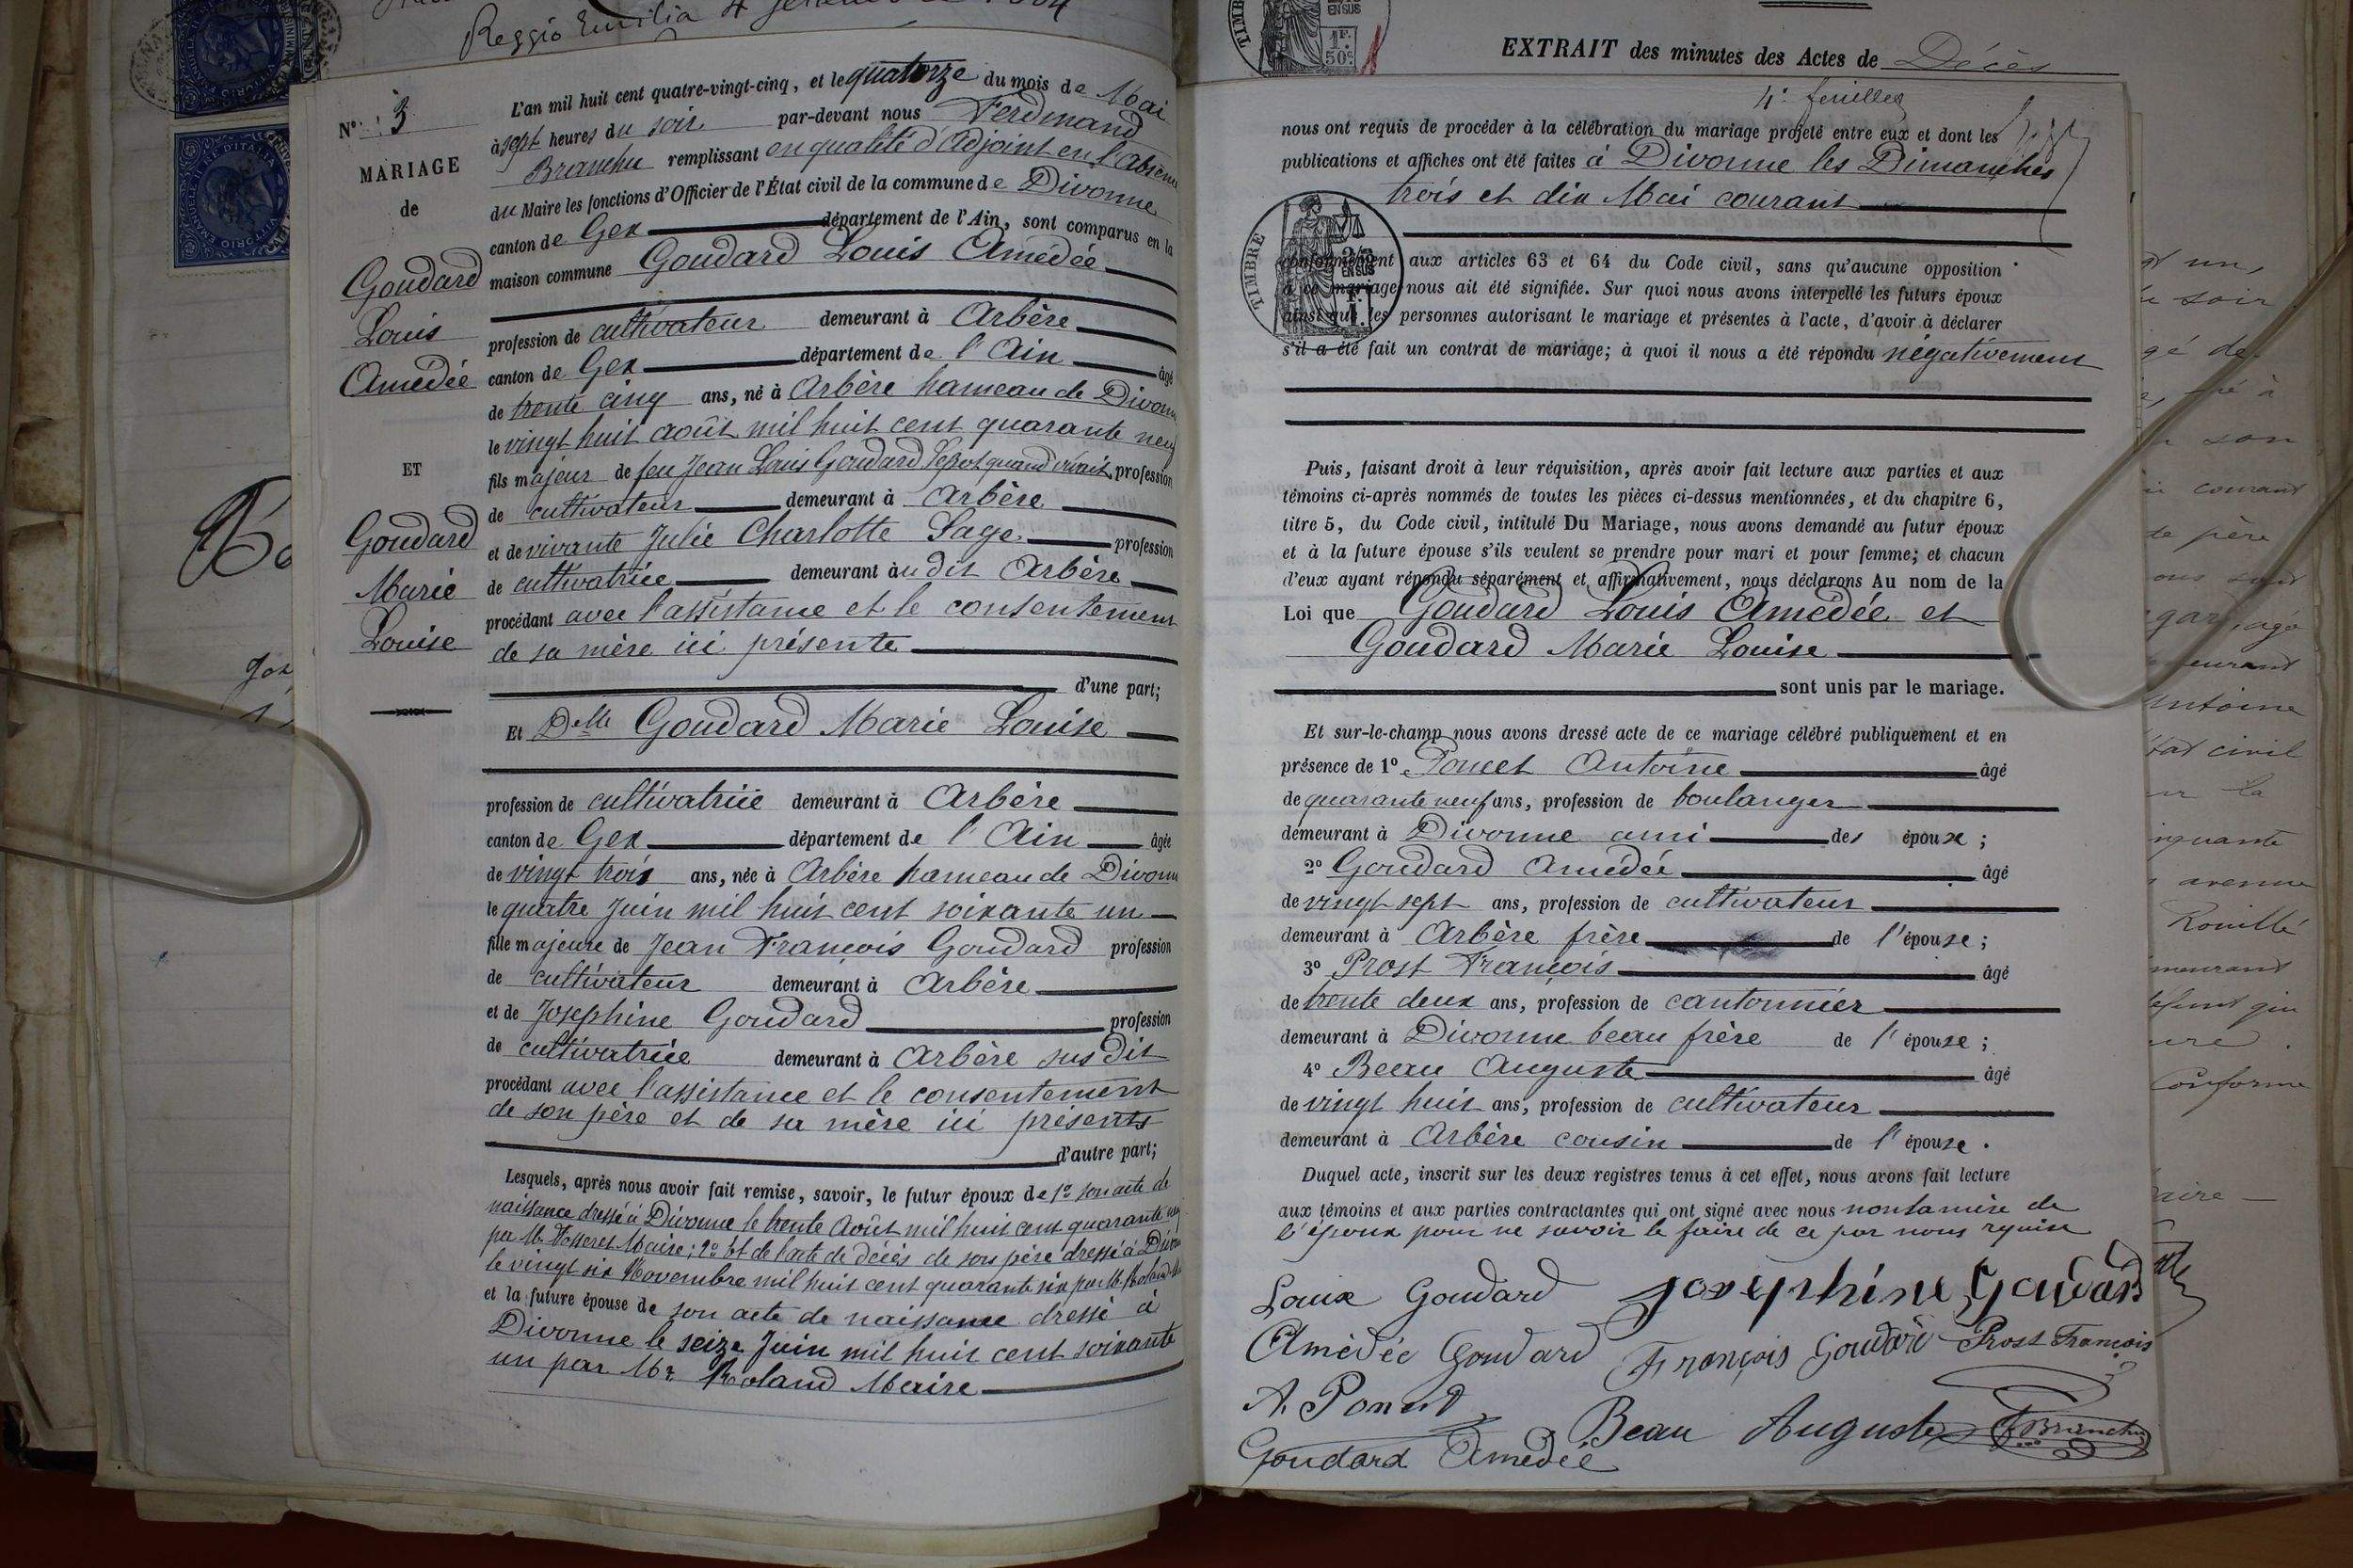 Reggio Emilia 4
EXTRAIT des minutes des Actes de Décès
N° 3
MARIAGE
de
Goudard
Louis
Amédée
ET
Goudard
Marie
Louise
L'an mil huit cent quatre-vingt-cinq, et le quatorze du mois de Mai
à sept heures du soir par-devant nous Ferdinand
Branchu remplissant en qualité d'adjoint en l'absence
du Maire les fonctions d'Officier de l'État civil de la commune de Divonne
canton de Gex département de l'Ain, sont comparus en la
maison commune Goudard Louis Amédée
profession de cultivateur demeurant à Arbère
canton de Gex département de l'Ain âgé
de trente cinq ans, né à Arbère hameau de Divonne
le vingt huit août mil huit cent quarante neuf
fils majeur de feu Jean Louis Goudard quand vivait profession
de cultivateur demeurant à Arbère
et de vivante Julie Charlotte Sage profession
de cultivatrice demeurant àudit Arbère
procédant avec l'assistance et le consentement
de sa mère ici présente
d'une part;
Et Delle Goudard Marie Louise
profession de cultivatrice demeurant à Arbère
canton de Gex département de l'Ain âgée
de vingt trois ans, née à Arbère hameau de Divonne
le quatre Juin mil huit cent soixante un
fille majeure de Jean François Goudard profession
de cultivateur demeurant à Arbère
et de Josephine Goudard profession
de cultivatrice demeurant à Arbère susdit
procédant avec l'assistance et le consentement
de son père et de sa mère ici présents
d'autre part;
Lesquels, après nous avoir fait remise, savoir, le futur époux de 1° son acte de
naissance dressé à Divonne le trente Août mil huit cent quarante neuf
par Mr Vasseret Maire; 2° Et de l'acte de décès de son père dressé à Divonne
le vingt six Novembre mil huit cent quarante six par Mr Roland
et la future épouse de son acte de naissance dressé à
Divonne le seize Juin mil huit cent soixante
un par Mr Roland Maire
4e feuillet
nous ont requis de procéder à la célébration du mariage projeté entre eux et dont les
publications et affiches ont été faites à Divonne les Dimanches
trois et dix Mai courant
TIMBRE
conformément aux articles 63 et 64 du Code civil, sans qu'aucune opposition
à ce mariage nous ait été signifiée. Sur quoi nous avons interpellé les futurs époux
ainsi que les personnes autorisant le mariage et présentes à l'acte, d'avoir à déclarer
s'il a été fait un contrat de mariage; à quoi il nous a été répondu négativement
Puis, faisant droit à leur réquisition, après avoir fait lecture aux parties et aux
témoins ci-après nommés de toutes les pièces ci-dessus mentionnées, et du chapitre 6,
titre 5, du Code civil, intitulé Du Mariage, nous avons demandé au futur époux
et à la future épouse s'ils veulent se prendre pour mari et pour femme; et chacun
d'eux ayant répondu séparément et affirmativement, nous déclarons Au nom de la
Loi que Goudard Louis Amédée et
Goudard Marie Louise
sont unis par le mariage.
Et sur-le-champ nous avons dressé acte de ce mariage célébré publiquement et en
présence de 1° Poncet Antoine âgé
de quarante neuf ans, profession de boulanger
demeurant à Divonne ami des époux;
2° Goudard Amédée âgé
de vingt sept ans, profession de cultivateur
demeurant à Arbère frère de l'épouse;
3° Prost François âgé
de trente deux ans, profession de cantonnier
demeurant à Divonne beau frère de l'épouse;
4° Beau Auguste âgé
de vingt huit ans, profession de cultivateur
demeurant à Arbère cousin de l'épouse.
Duquel acte, inscrit sur les deux registres tenus à cet effet, nous avons fait lecture
aux témoins et aux parties contractantes qui ont signé avec nous non la mère de
l'époux pour ne savoir le faire de ce par nous requise
Louise Goudard Josephine Goudard
Amédée Goudard François Goudard Prost François
A. Poncet Beau Auguste F Branchu
Goudard Amédée